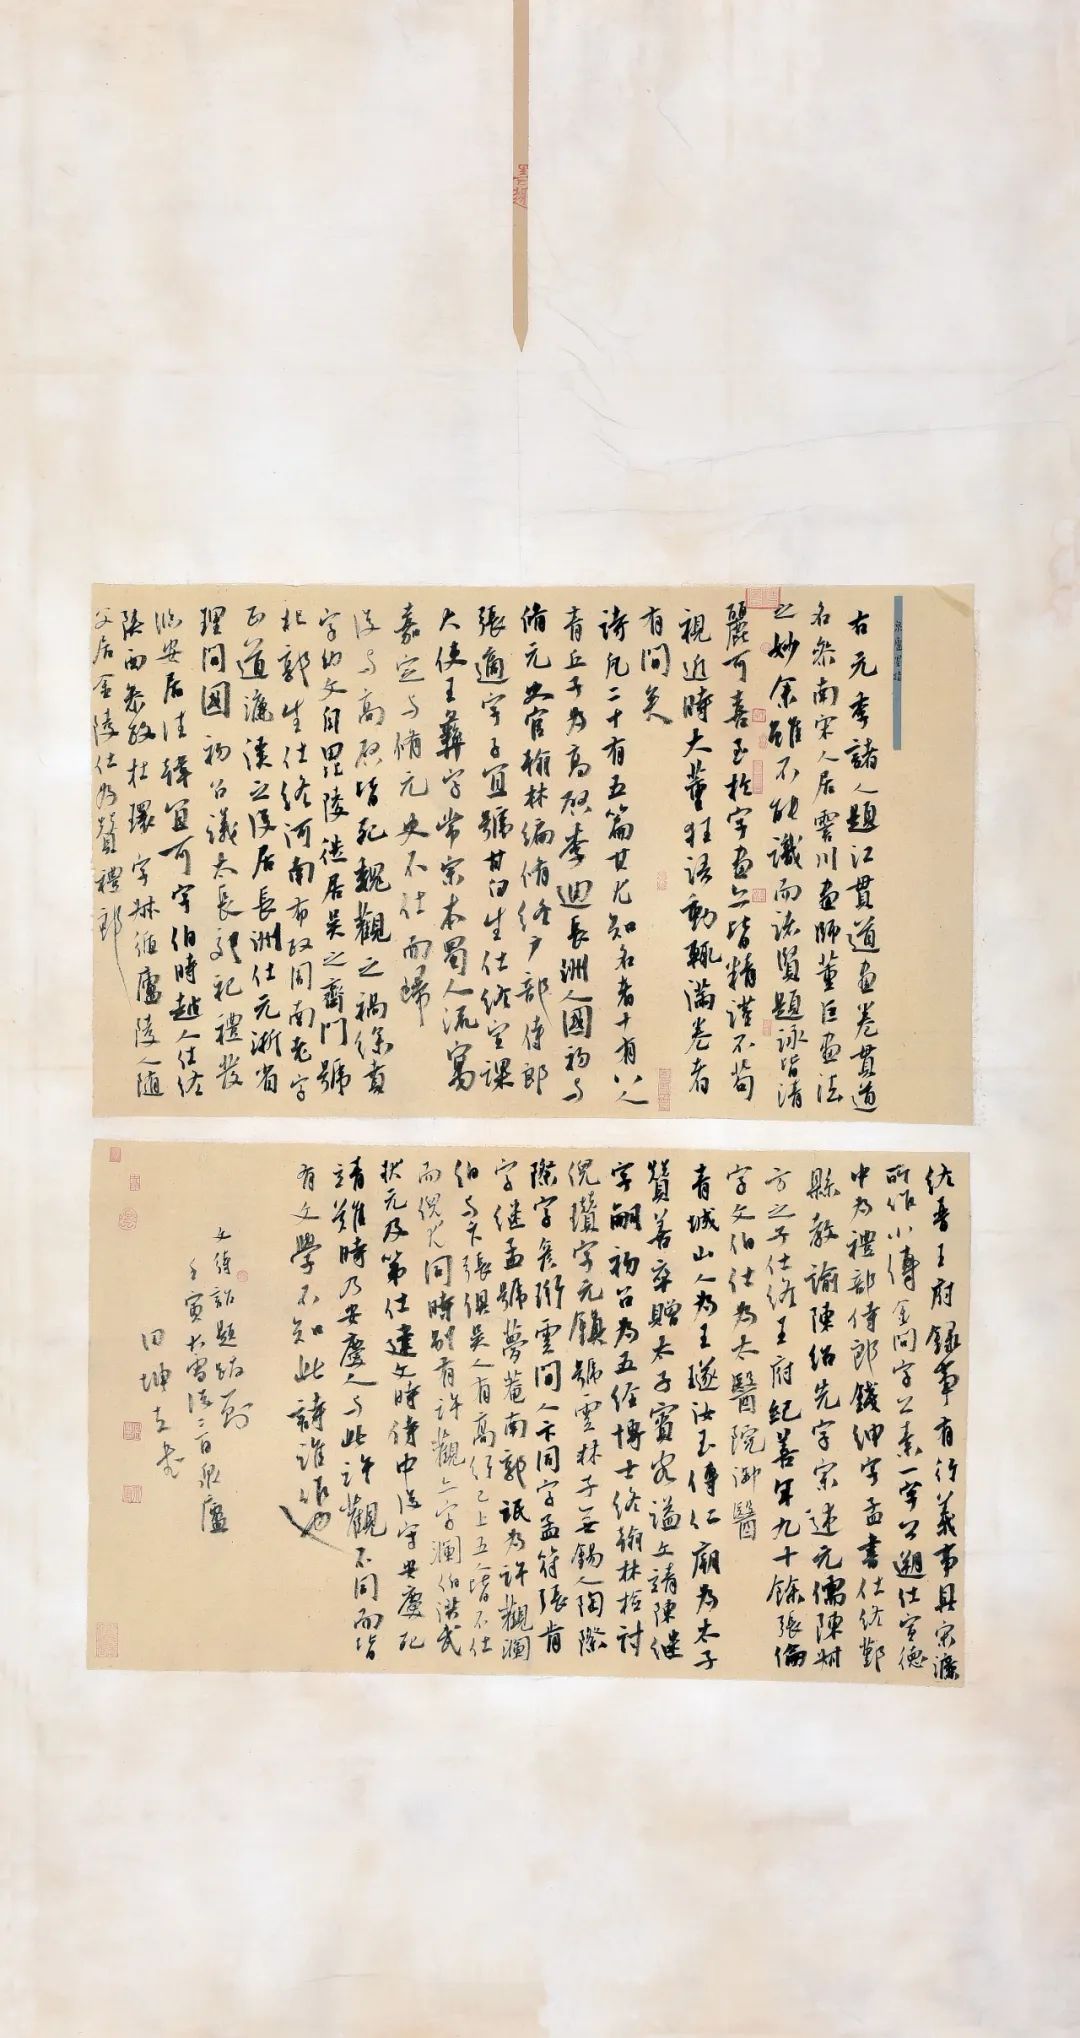 右元季諸人題江貫道画卷貫道
名參南宋人居霅川画師董巨画法
之妙余雖不能識而諸賢題詠皆清
麗可喜至於字画亦皆精謹不苟
視近時大葷狂語動輒滿卷者
有間矣
詩凡二十有五篇其尤知名者十有八人
青丘子為高啟季迪長洲人國初与
脩元史官翰林編脩終戶部侍郎
張適字子宜號甘白生仕終宣課
大使王彝字常宗本蜀人流寓
嘉定与脩元史不仕而歸
後与高啟皆死魏觀之禍徐賁
字幼文自毘陵徙居吳之齊門號
北郭生仕終河南布政周南老字
正道濂溪之後居長洲仕元浙省
理問國初召議太常祀禮發
臨安居住韓宜可字伯時越人仕終
陝西參政杜環字叔循廬陵人隨
父居金陵仕為贊禮郎
終晉王府録事有行義事具宋濂
所作小傳金問字公素一字公遡仕宣德
中為禮部侍郎錢紳字孟書仕終鄞
縣教諭陳紹先字宗述元儒陳
方之子仕終王府紀善年九十餘張倫
字文伯仕為太醫院御醫
青城山人為王璲汝玉傅仁廟為太子
贊善卒贈太子賓客謚文靖陳繼
字嗣初召為五經博士終翰林檢討
倪瓚字元鎮號雲林子無錫人陶際
際字彥珩雲間人卞同字孟符張肯
字继孟號夢菴南郭氓為許觀瀾
伯与卞張俱吳人有高行已上五人皆不仕
而倪尤同時別有許觀亦字瀾伯洪武
狀元及第仕建文時侍中後守安慶死
靖難時乃安慶人与此許觀不同而皆
有文學不知此詩誰作也
文待詔題跋一則
壬寅大雪後二百泉廬
田坤立書